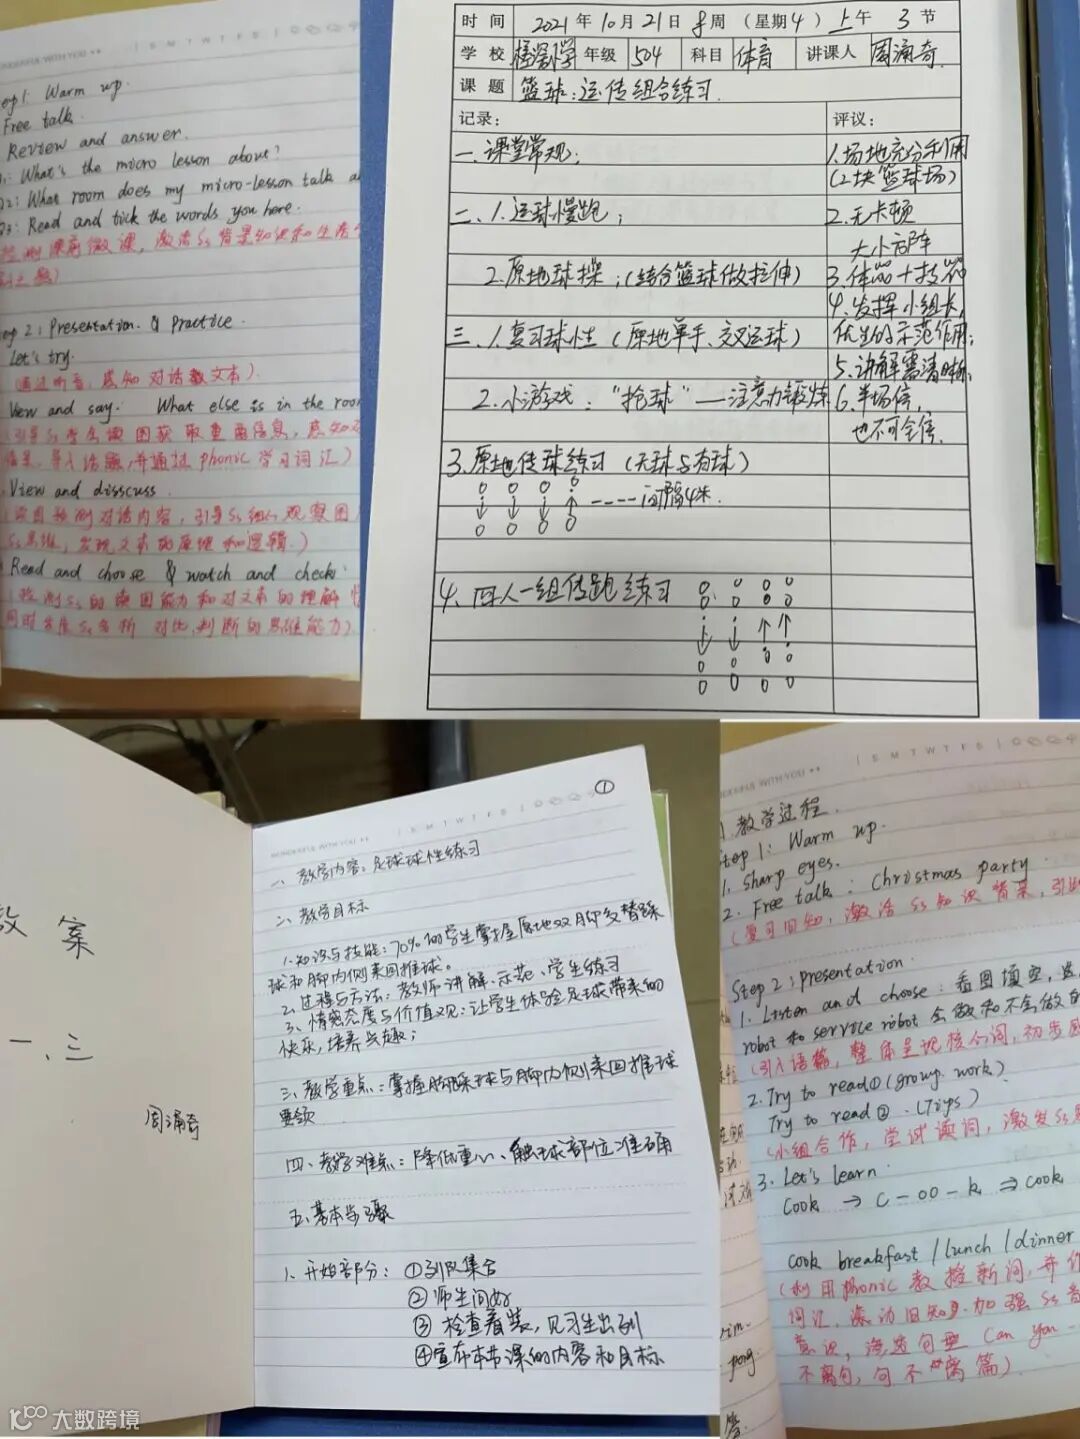 WONDERFUL WITH YOU
S M T W T F S
Step 1: Warm up.
Free talk.
Review and answer.
What's the micro lesson about?
Q2: What room does my micro-lesson talk
Q3: Read and tick the words you here.
检测课前微课，激活Ss背景知识和生活
Step 2: Presentation & Practice.
Let's try.
(通过听音，感知对话文本).
View and say: What else is in the room
引导Ss学会读图获取重要信息，感知
导入话题，并通过phonic学习词汇)
View and disscuss.
读图预测对话内容，引导Ss细心观察图
Ss思维，发现文本的原理和逻辑.)
Read and choose & watch and check:
检测Ss的读图能力和对文本的理解
同时发展Ss分析 对比,判断的思维能力)
时 间 2021年10月21日 8周 (星期4) 上午 3节
学 校 年级 504 科目 体育 讲课人 周涌奇
课 题 篮球：运传组合练习.
记录： 评议：
一.课堂常规； 1.场地充分利用
(2块篮球场)
二、1.运球慢跑； 2.无卡顿
大小方阵
2.原地球操；(结合篮球做拉伸) 3.体能+技能
4.发挥小组长,
三.1.复习球性(原地单手、交叉运球) 优生的示范作用；
5.讲解需清晰，
2.小游戏："抢球"—注意力锻炼 6.半场传，
也不可全传.
3.原地传球练习(无球与有球)
间隔4米.
4、四人一组传跑练习
教 案
一、三
周涌奇
①
WONDERFUL WITH YOU
S M T W T F S
一、教学内容：足球球性练习
二、教学目标
1.知识与技能：70%的学生掌握原地双脚交替踩
球和脚内侧来回推球。
2.过程与方法：教师讲解、示范、学生练习
3、情感态度与价值观：让学生体验足球带来的
快乐，培养兴趣；
三、教学重点：掌握脚踩球与脚内侧来回推球
要领
四、教学难点：降低重心、触球部位准确
五、基本步骤
1、开始部分：①列队集合
②师生问好
③检查着装，见习生出列
④宣布本节课的内容和目标
WONDERFUL WITH YOU
S M T W T F S
教学过程.
Step 1: Warm up.
1. Sharp eyes.
2. Free talk: Christmas party
(复习旧知，激活Ss知识背景，引出
Step 2: presentation.
1. Listen and choose: 看图填空,
robot和service robot会做和不会做的
(引入语篇，整体呈现核心词，初步感
2. Try to read①(group work)
Try to read②.(Tips)
(小组合作，尝试读词，激发Ss思
3. Let's learn.
Cook → C-oo-k ⇒ cook
Cook breakfast / lunch / dinner
(利用phonic教授新词，并
词汇，滚动旧知,加强Ss音
意识，渗透句型 Can you
不离句，句不离篇).
大数跨境